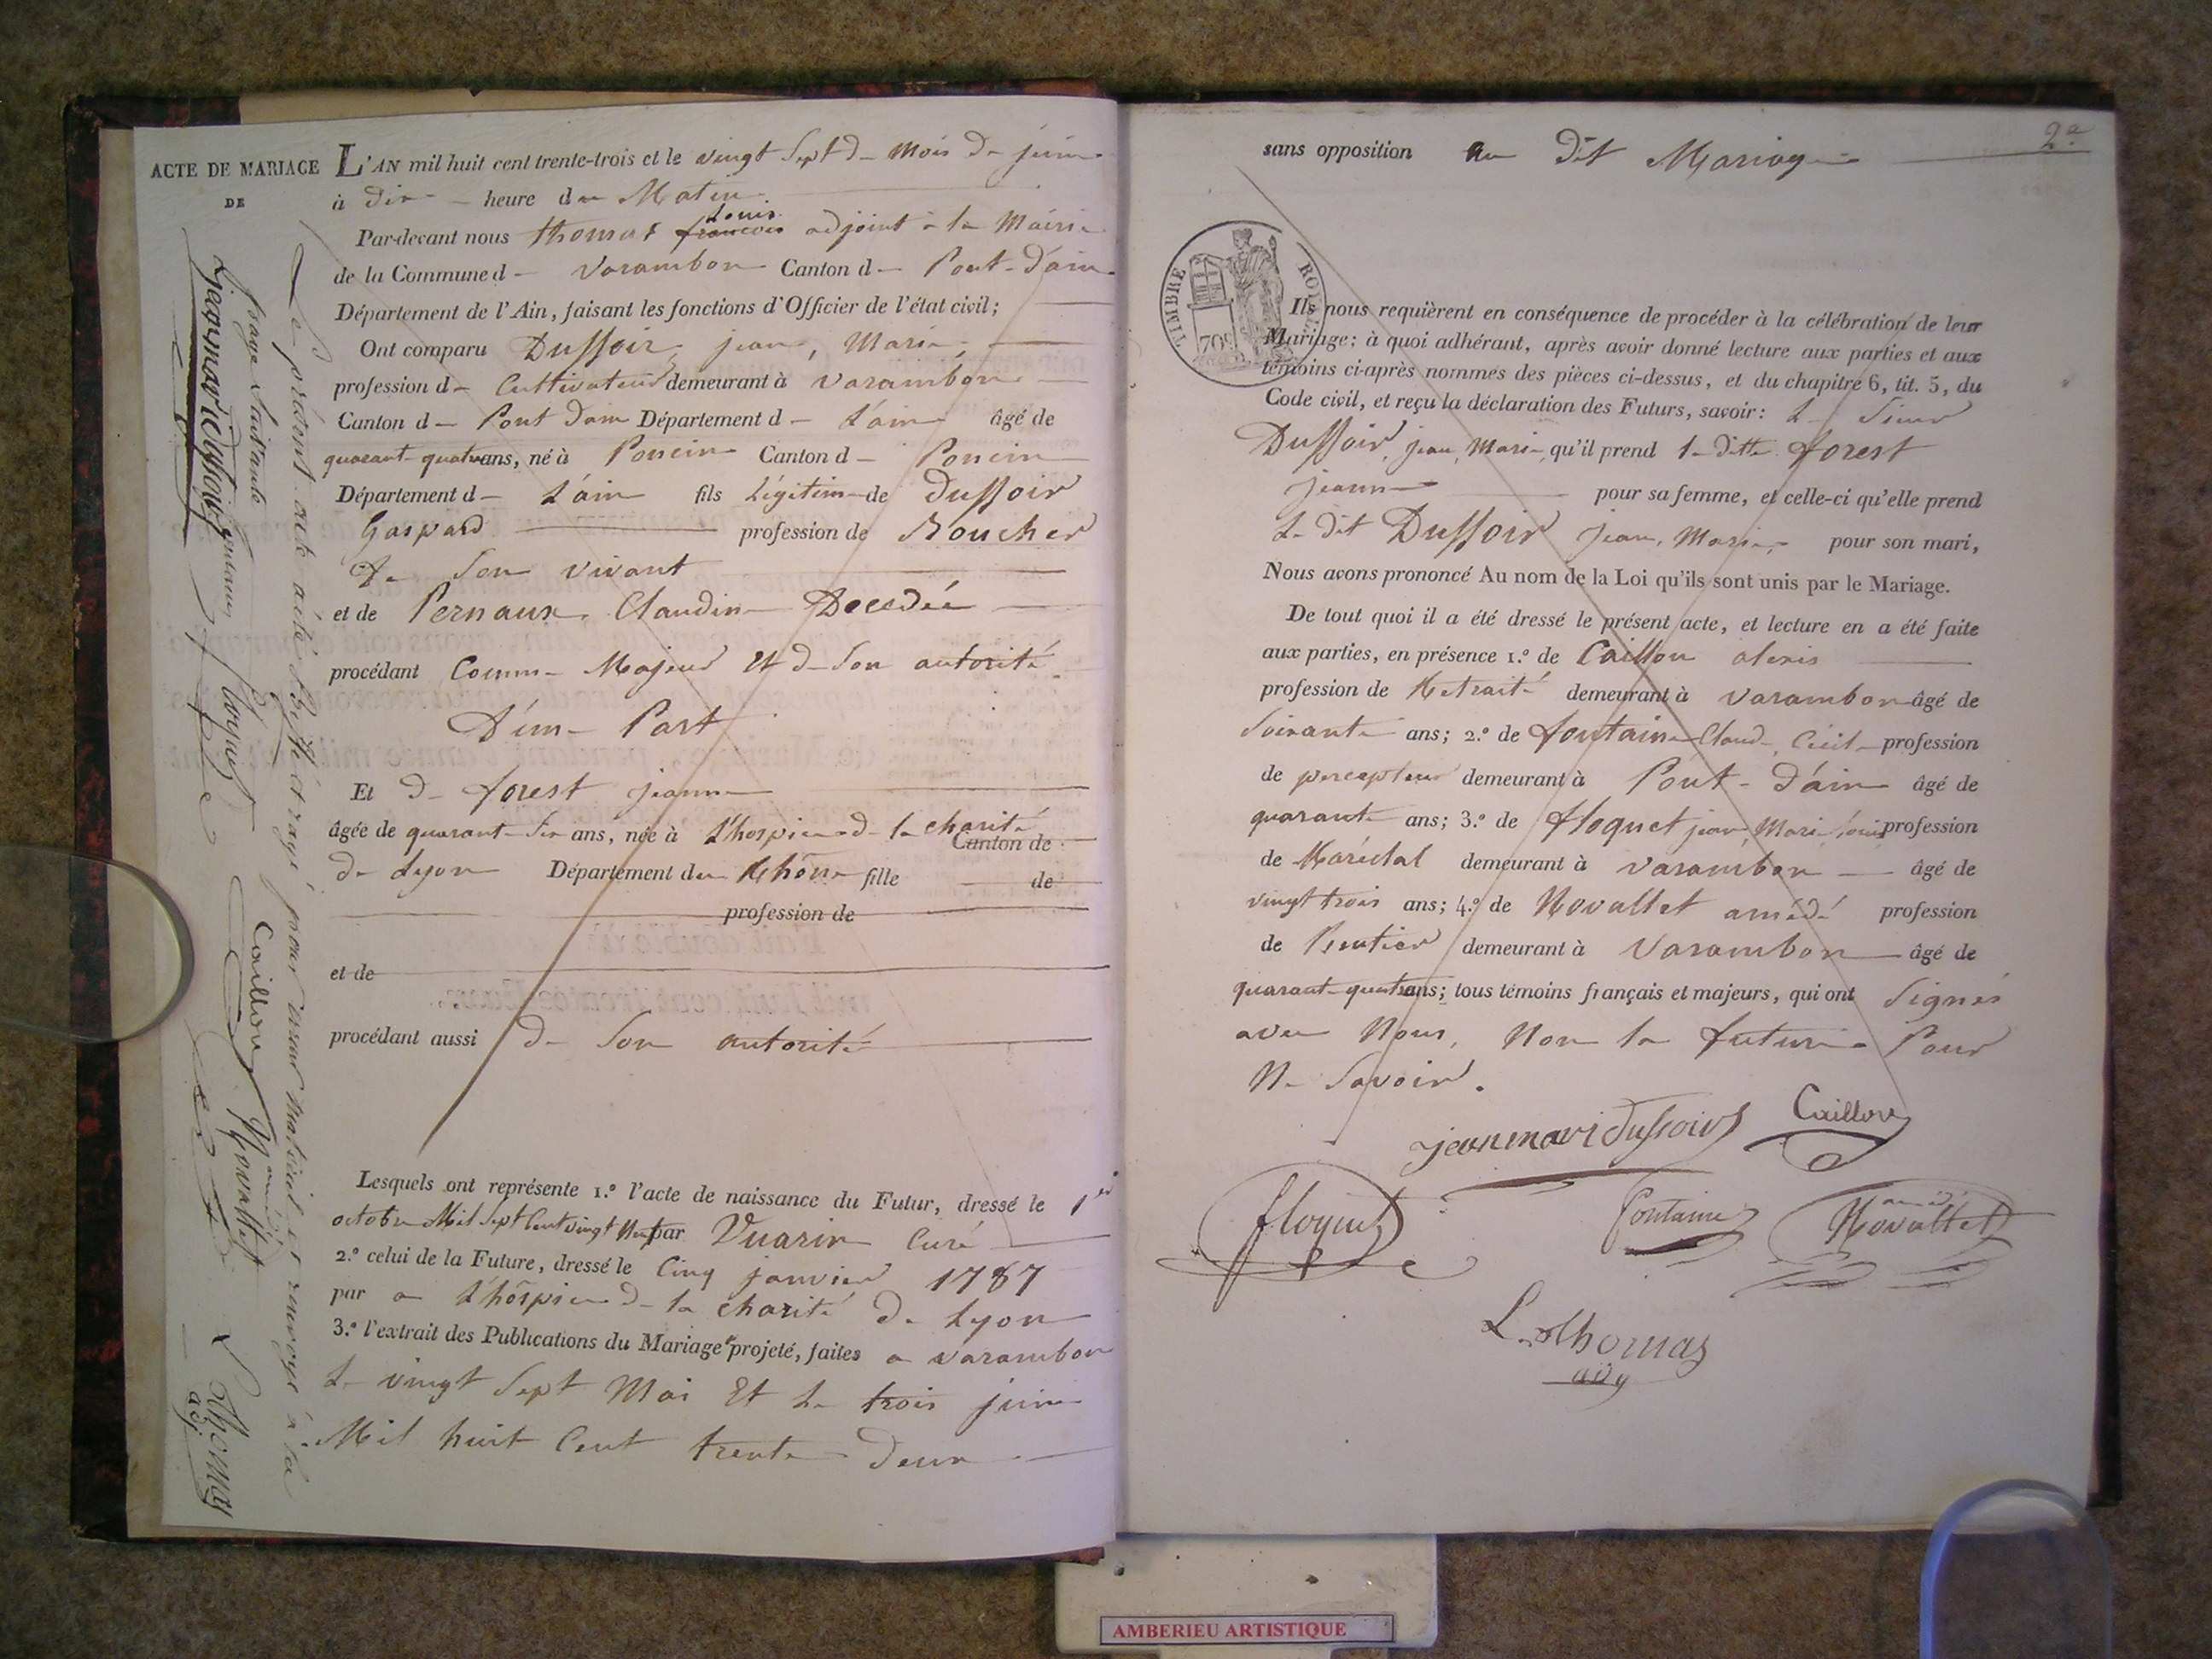 ACTE DE MARIAGE
DE
L'AN mil huit cent trente-trois et le vingt Sept de Mois de juin
à dix heure du Matin
Par-devant nous thomas françois Louis adjoint à la Mairie
de la Commune de Varambon Canton de Pont-d'ain
Département de l'Ain, faisant les fonctions d'Officier de l'état civil;
Ont comparu Dussoir, jean, Marie,
profession de Cultivateur demeurant à Varambon
Canton de Pont d'ain Département de L'ain âgé de
quarant-quatre ans, né à Poncin Canton de Poncin
Département de L'ain fils Légitime de Dussoir
Gaspard profession de Boucher
De Son vivant
et de Pernaux Claudine Décédée
procédant Comme Majeur Et de Son autorité
D'une Part
Et de forest jeanne
âgée de quarant-Six ans, née à L'hospice de la charité
Canton de
de Lyon Département du Rhône fille de
profession de
et de
procédant aussi de Son autorité
Lesquels ont représenté 1.º l'acte de naissance du Futur, dressé le 1er
octobre Mil Sept Cent vingt Neuf par Vuarin Curé
2.º celui de la Future, dressé le Cinq janvier 1787
par a L'hôspice de la charité de Lyon
3.º l'extrait des Publications du Mariage projeté, faites a Varambon
Le vingt Sept Mai Et le trois juin
Mil huit Cent trente Deux
Le présent acte a été Biffé et rayé pour
et renvoyé à la
page Suivante
jeanmari dussoir
Fontaine
floquet
Caillon
amédé Novallet
L Thomas
adj
2e
sans opposition au Dit Mariage
TIMBRE ROYAL
70c
Ils nous requièrent en conséquence de procéder à la célébration de leur
Mariage: à quoi adhérant, après avoir donné lecture aux parties et aux
témoins ci-après nommés des pièces ci-dessus, et du chapitre 6, tit. 5, du
Code civil, et reçu la déclaration des Futurs, savoir: Le Sieur
Dussoir, jean, Marie, qu'il prend la ditte forest
jeanne pour sa femme, et celle-ci qu'elle prend
Le dit Dussoir jean, Marie, pour son mari,
Nous avons prononcé Au nom de la Loi qu'ils sont unis par le Mariage.
De tout quoi il a été dressé le présent acte, et lecture en a été faite
aux parties, en présence 1.º de Caillon alexis
profession de Retraité demeurant à Varambon âgé de
Soixante ans; 2.º de fontaine Claude, Cécile profession
de percepteur demeurant à Pont-d'ain âgé de
quarante ans; 3.º de floquet jean, Marie, Louis profession
de Maréchal demeurant à Varambon âgé de
vingt trois ans; 4.º de Novallet amédé profession
de Rentier demeurant à Varambon âgé de
quarant-quatre ans; tous témoins français et majeurs, qui ont Signés
avec Nous, Non la future Pour
Ne Savoir.
jeanmari dussoir Caillon
floquet Fontaine amédé Novallet
L. Thomas
adj
AMBERIEU ARTISTIQUE